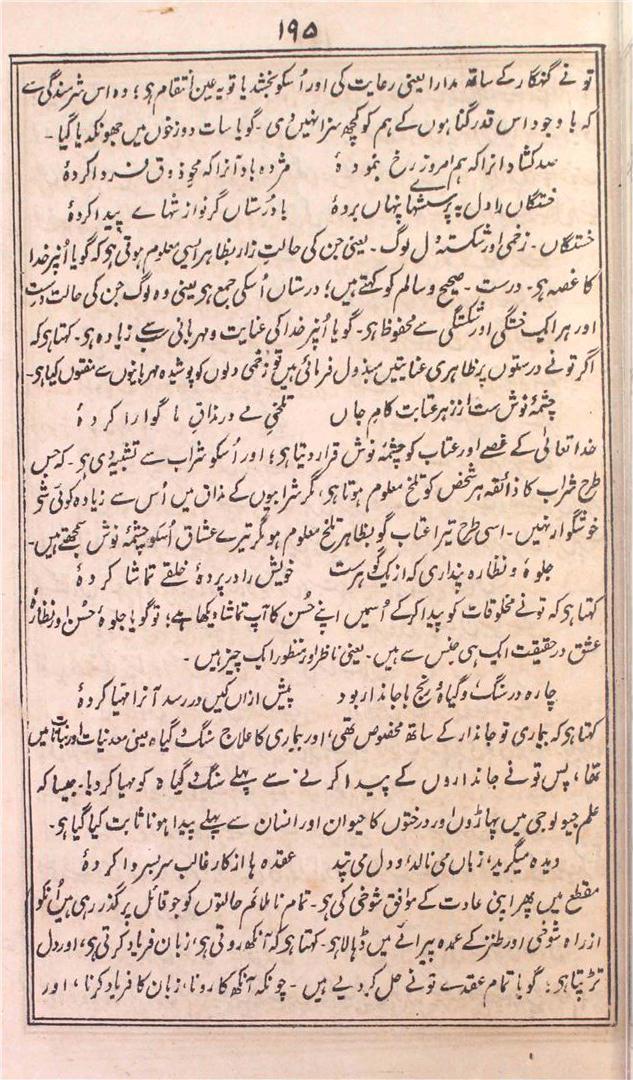 ۱۹۵
تو نے گنہگار کے ساتھ مدارا یعنی رعایت کی اور اُسکو بخشدیا تو یہ عین انتقام ہو؛ وہ اس شرمندگی سے
کہ باوجود اس قدر گناہوں کے ہم کو کچھ سزا نہیں دی۔ گویا سات دوزخوں میں جھونکدیا گیا۔
صد کشاد آنرا کہ ہم امروز رخ بنمودۂ مژدہ باد آنرا کہ محوِ ذوق فردا کردۂ
خستگاں را دل بہ پرسشہاے پنہاں بردۂ با درُستاں گر نوازشہاے پیدا کردۂ
خستگاں۔ زخمی اور شکستہ دل لوگ۔ یعنی جن کی حالتِ زار بظاہر ایسی معلوم ہوتی ہو کہ گویا اُنپر خدا
کا غصہ ہو۔ درست۔ صحیح و سالم کو کہتے ہیں؛ درستاں اُسکی جمع ہو یعنی وہ لوگ جن کی حالت درست
اور ہر ایک خستگی اور شکستگی سے محفوظ ہو۔ گویا اُنپر خدا کی عنایت و مہربانی سب سے زیادہ ہو۔ کہتا ہو کہ
اگر تو نے درستوں پر ظاہری عنایتیں مبذول فرمائی ہیں تو زخمی دلوں کو پوشیدہ مہربانیوں سے مفتوں کیا ہو۔
چشمۂ نوش ست از زہر عتابت کامِ جاں تلخیِ مے در مذاقِ ما گوارا کردۂ
خدا تعالیٰ کے غصے اور عتاب کو چشمۂ نوش قرار دیتا ہو؛ اور اُسکو شراب سے تشبیہ دی ہو۔ کہ جس
طرح شراب کا ذائقہ ہر شخص کو تلخ معلوم ہوتا ہو، مگر شرابیوں کے مذاق میں اُس سے زیادہ کوئی شو
خوشگوار نہیں۔ اسی طرح تیرا عتاب گو بظاہر تلخ معلوم ہو مگر تیرے عشاق اُسکو چشمۂ نوش سمجھتے ہیں۔
جلوہ و نظارہ پنداری کہ از یک گوہرست خویش را در پردۂ خلقے تماشا کردۂ
کہتا ہو کہ تو نے مخلوقات کو پیدا کر کے اُسمیں اپنے حُسن کا آپ تماشا دیکھا ہے؛ تو گویا جلوۂ حُسن اور نظارۂ
عشق در حقیقت ایک ہی جنس سے ہیں۔ یعنی ناظر اور منظور ایک چیز ہیں۔
چارہ در سنگ و گیاہ و رنج با جاندار بود پیش ازاں کیں در رسد آنرا مہیا کردۂ
کہتا ہو کہ بیماری تو جاندار کے ساتھ مخصوص تھی، اور بیماری کا علاج سنگ و گیاہ یعنی معدنیات اور نباتات میں
تھا، پس تو نے جانداروں کے پیدا کرنے سے پہلے سنگ و گیاہ کو مہیا کر دیا۔ جیسا کہ
علم جیولوجی میں پہاڑوں اور درختوں کا حیوان اور انسان سے پہلے پیدا ہونا ثابت کیا گیا ہو۔
دیدہ میگرید، زباں می نالد، و دل می تپد عقدہ ہا از کارِ غالب سربسر وا کردۂ
مقطع میں پھر اپنی عادت کے موافق شوخی کی ہو۔ تمام ناملائم حالتوں کو جو قائل پر گذر رہی ہیں اُنکو
از راہ شوخی اور طنز کے عمدہ پیرائے میں ڈھالا ہو۔ کہتا ہو کہ آنکھ روتی ہو، زبان فریاد کرتی ہو، اور دل
تڑپتا ہو؛ گویا تمام عقدے تو نے حل کر دیے ہیں۔ چونکہ آنکھ کا رونا، زبان کا فریاد کرنا، اور